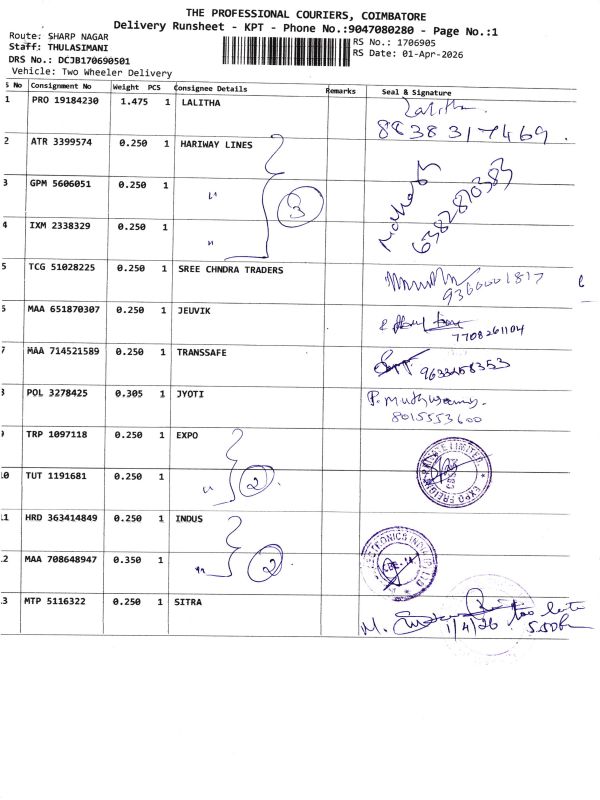 THE PROFESSIONAL COURIERS, COIMBATORE
Delivery Runsheet - KPT - Phone No.:9047080280 - Page No.:1
Route: SHARP NAGAR
Staff: THULASIMANI
DRS No.: DCJB170690501
Vehicle: Two Wheeler Delivery
RS No.: 1706905
RS Date: 01-Apr-2026
S No Consignment No Weight PCS Consignee Details Remarks Seal & Signature
1 PRO 19184230 1.475 1 LALITHA Lalitha
8838317469.
2 ATR 3399574 0.250 1 HARIWAY LINES
3 GPM 5606051 0.250 1 " 3
4 IXM 2338329 0.250 1 "
6382870383
5 TCG 51028225 0.250 1 SREE CHNDRA TRADERS
9360001817
6 MAA 651870307 0.250 1 JEUVIK
7708261104
7 MAA 714521589 0.250 1 TRANSSAFE
9633458353
8 POL 3278425 0.305 1 JYOTI P. Muthusamy.
8015553600
9 TRP 1097118 0.250 1 EXPO
10 TUT 1191681 0.250 1 " 2
EXPO FREIGHT PRIVATE LIMITED
11 HRD 363414849 0.250 1 INDUS
12 MAA 708648947 0.350 1 " 2
13 MTP 5116322 0.250 1 SITRA
M.
1/4/26 too late